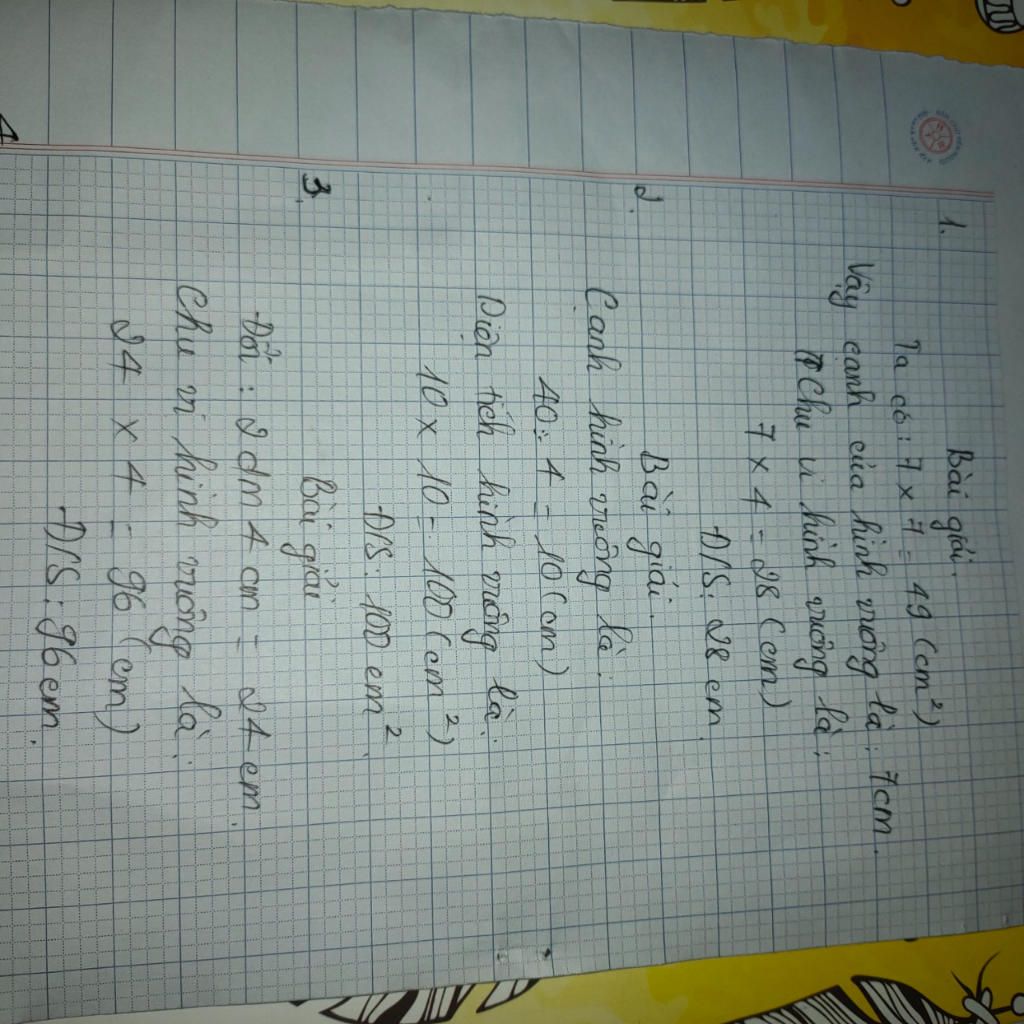 1. Bài giải.
Ta có: 7 x 7 = 49 (cm²)
Vậy cạnh của hình vuông là: 7cm.
Chu vi hình vuông là:
7 x 4 = 28 (cm)
Đ/S: 28 cm
2. Bài giải.
Cạnh hình vuông là:
40 : 4 = 10 (cm)
Diện tích hình vuông là:
10 x 10 = 100 (cm²)
Đ/S: 100 cm².
3. Bài giải
Đổi : 2 dm 4 cm = 24 cm.
Chu vi hình vuông là:
24 x 4 = 96 (cm)
Đ/S: 96 cm.
4